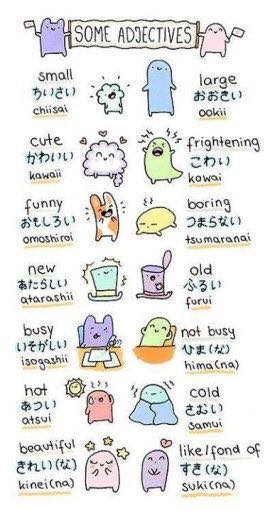 SOME ADJECTIVES
small
ちいさい
chiisai
large
おおきい
ookii
cute
かわいい
kawaii
frightening
こわい
kowai
funny
おもしろい
omoshiroi
boring
つまらない
tsumaranai
new
あたらしい
atarashii
old
ふるい
furui
busy
いそがしい
isogashii
not busy
ひま(な)
hima(na)
hot
あつい
atsui
cold
さむい
samui
beautiful
きれい(な)
kinei(na)
like/fond of
すき(な)
suki(na)